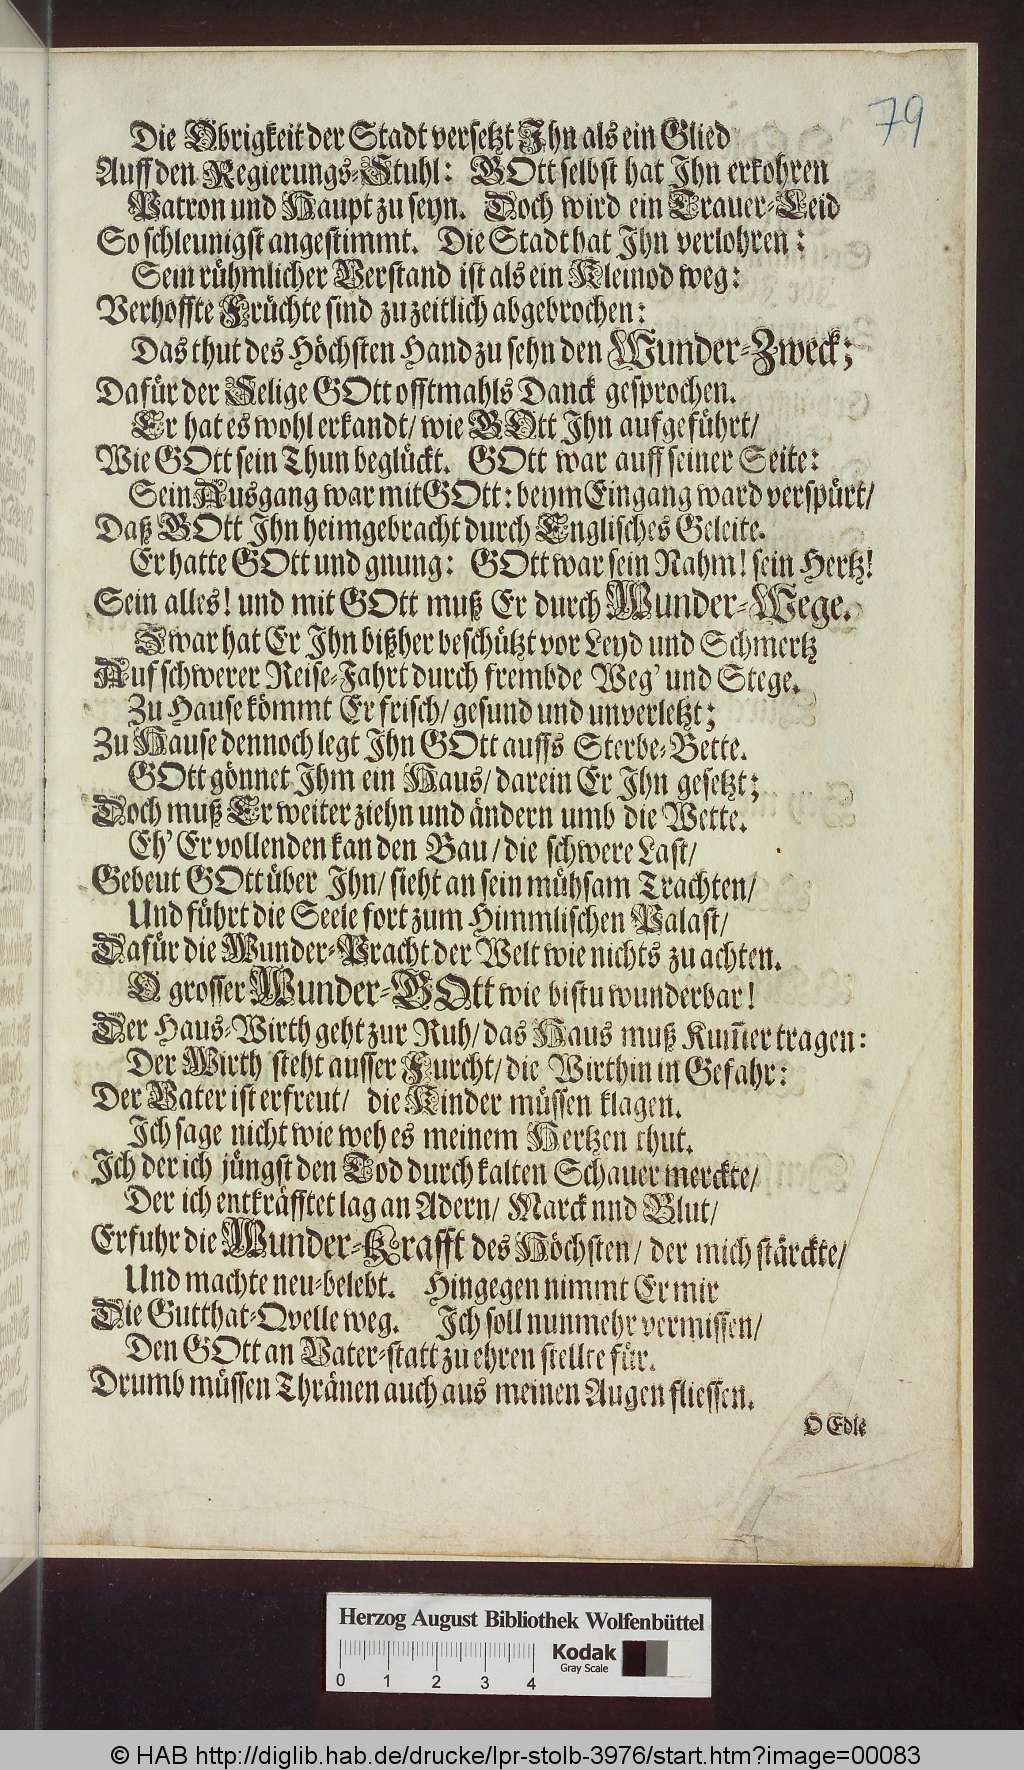 79
Die Obrigkeit der Stadt versetzt Ihn als ein Glied
Auff den Regierungs-Stuhl: GOtt selbst hat Ihn erkohren
Patron und Haupt zu seyn. Doch wird ein Trauer-Leid
So schleunigst angestimmt. Die Stadt hat Ihn verlohren:
Sein rühmlicher Verstand ist als ein Kleinod weg:
Verhoffte Früchte sind zu zeitlich abgebrochen:
Das thut des Höchsten Hand zu sehn den Wunder-Zweck;
Dafür der Selige GOtt offtmahls Danck gesprochen.
Er hat es wohl erkandt/ wie GOtt Ihn aufgeführt/
Wie GOtt sein Thun beglückt. GOtt war auff seiner Seite:
Sein Ausgang war mit GOtt: beym Eingang ward verspürt/
Daß GOtt Ihn heimgebracht durch Englisches Geleite.
Er hatte GOtt und gnung: GOtt war sein Nahm! sein Hertz!
Sein alles! und mit GOtt muß Er durch Wunder-Wege.
Zwar hat Er Ihn bißher beschützt vor Leyd und Schmertz
Auf schwerer Reise-Fahrt durch frembde Weg' und Stege.
Zu Hause kömmt Er frisch/ gesund und unverletzt;
Zu Hause dennoch legt Ihn GOtt auffs Sterbe-Bette.
GOtt gönnet Ihm ein Haus/ darein Er Ihn gesetzt;
Doch muß Er weiter ziehn und ändern umb die Wette.
Eh' Er vollenden kan den Bau/ die schwere Last/
Gebeut GOtt über Ihn/ sieht an sein mühsam Trachten/
Und führt die Seele fort zum Himmlischen Palast/
Dafür die Wunder-Pracht der Welt wie nichts zu achten.
O grosser Wunder-GOtt wie bistu wunderbar!
Der Haus-Wirth geht zur Ruh/ das Haus muß Kum̄er tragen:
Der Wirth steht ausser Furcht/ die Wirthin in Gefahr:
Der Vater ist erfreut/ die Kinder müssen klagen.
Ich sage nicht wie weh es meinem Hertzen thut.
Ich der ich jüngst den Tod durch kalten Schauer merckte/
Der ich entkräfftet lag an Adern/ Marck nnd Blut/
Erfuhr die Wunder-Krafft des Höchsten/ der mich stärckte/
Und machte neu-belebt. Hingegen nimmt Er mir
Die Gutthat-Qvelle weg. Ich soll nunmehr vermissen/
Den GOtt an Vater-statt zu ehren stellte für.
Drumb müssen Thränen auch aus meinen Augen fliessen.
O Edle
Herzog August Bibliothek Wolfenbüttel
0 1 2 3 4
Kodak
Gray Scale
© HAB http://diglib.hab.de/drucke/lpr-stolb-3976/start.htm?image=00083